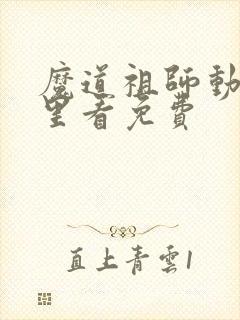 魔道祖師動
里看免費
直上青雲1